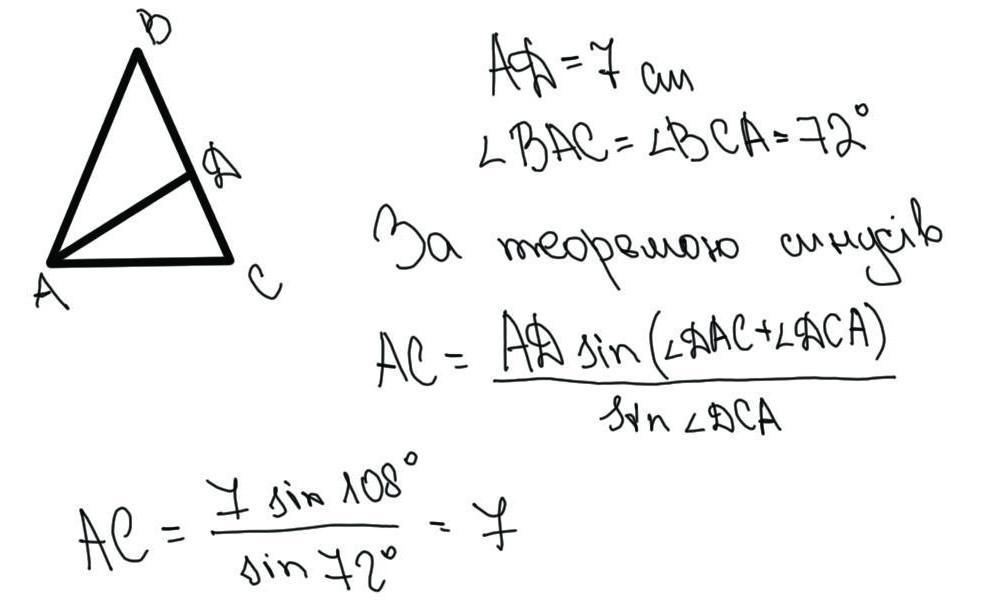 B
D
A
C
AD = 7 см
∠BAC = ∠BCA = 72°
За теоремою синусів
AC = AD sin (∠DAC + ∠DCA) / sin ∠DCA
AC = 7 sin 108° / sin 72° = 7